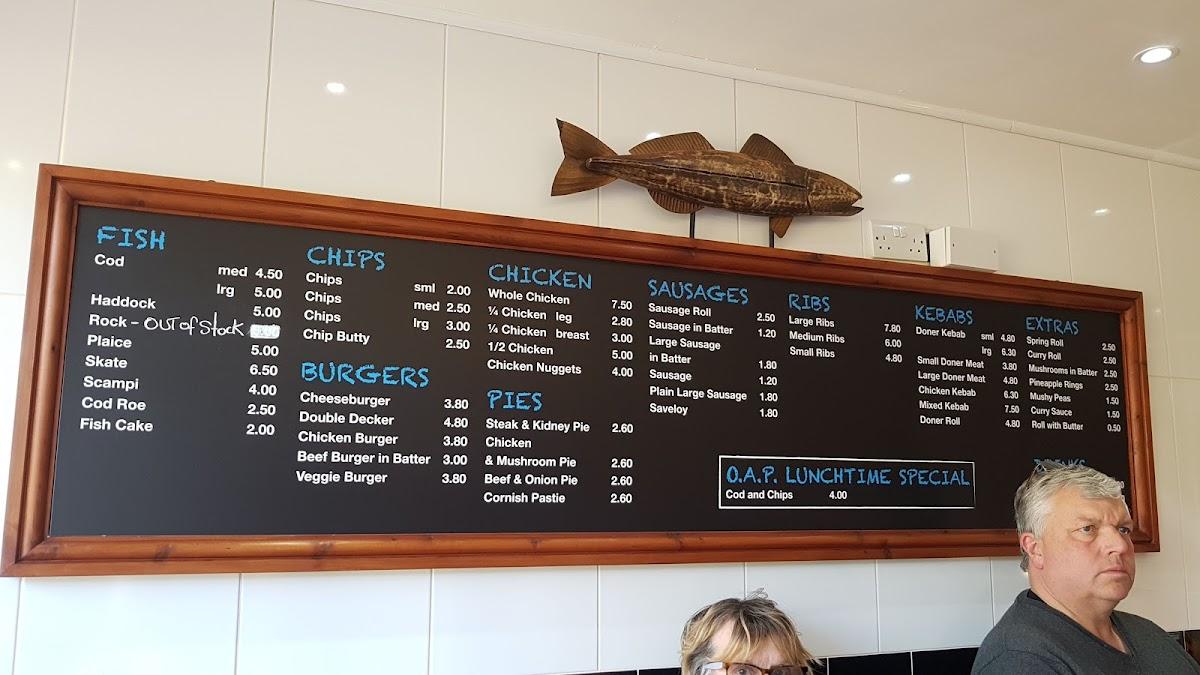 FISH
Cod
med 4.50
lrg 5.00
Haddock 5.00
Rock - OUT of Stock
Plaice 5.00
Skate 6.50
Scampi 4.00
Cod Roe 2.50
Fish Cake 2.00
CHIPS
Chips sml 2.00
Chips med 2.50
Chips lrg 3.00
Chip Butty 2.50
BURGERS
Cheeseburger 3.80
Double Decker 4.80
Chicken Burger 3.80
Beef Burger in Batter 3.00
Veggie Burger 3.80
CHICKEN
Whole Chicken 7.50
¼ Chicken leg 2.80
¼ Chicken breast 3.00
1/2 Chicken 5.00
Chicken Nuggets 4.00
PIES
Steak & Kidney Pie 2.60
Chicken
& Mushroom Pie 2.60
Beef & Onion Pie 2.60
Cornish Pastie 2.60
SAUSAGES
Sausage Roll 2.50
Sausage in Batter 1.20
Large Sausage
in Batter 1.80
Sausage 1.20
Plain Large Sausage 1.80
Saveloy 1.80
RIBS
Large Ribs 7.80
Medium Ribs 6.00
Small Ribs 4.80
KEBABS
Doner Kebab sml 4.80
lrg 6.30
Small Doner Meat 3.80
Large Doner Meat 4.80
Chicken Kebab 6.30
Mixed Kebab 7.50
Doner Roll 4.80
EXTRAS
Spring Roll 2.50
Curry Roll 2.50
Mushrooms in Batter 2.50
Pineapple Rings 2.50
Mushy Peas 1.50
Curry Sauce 1.50
Roll with Butter 0.50
O.A.P. LUNCHTIME SPECIAL
Cod and Chips 4.00